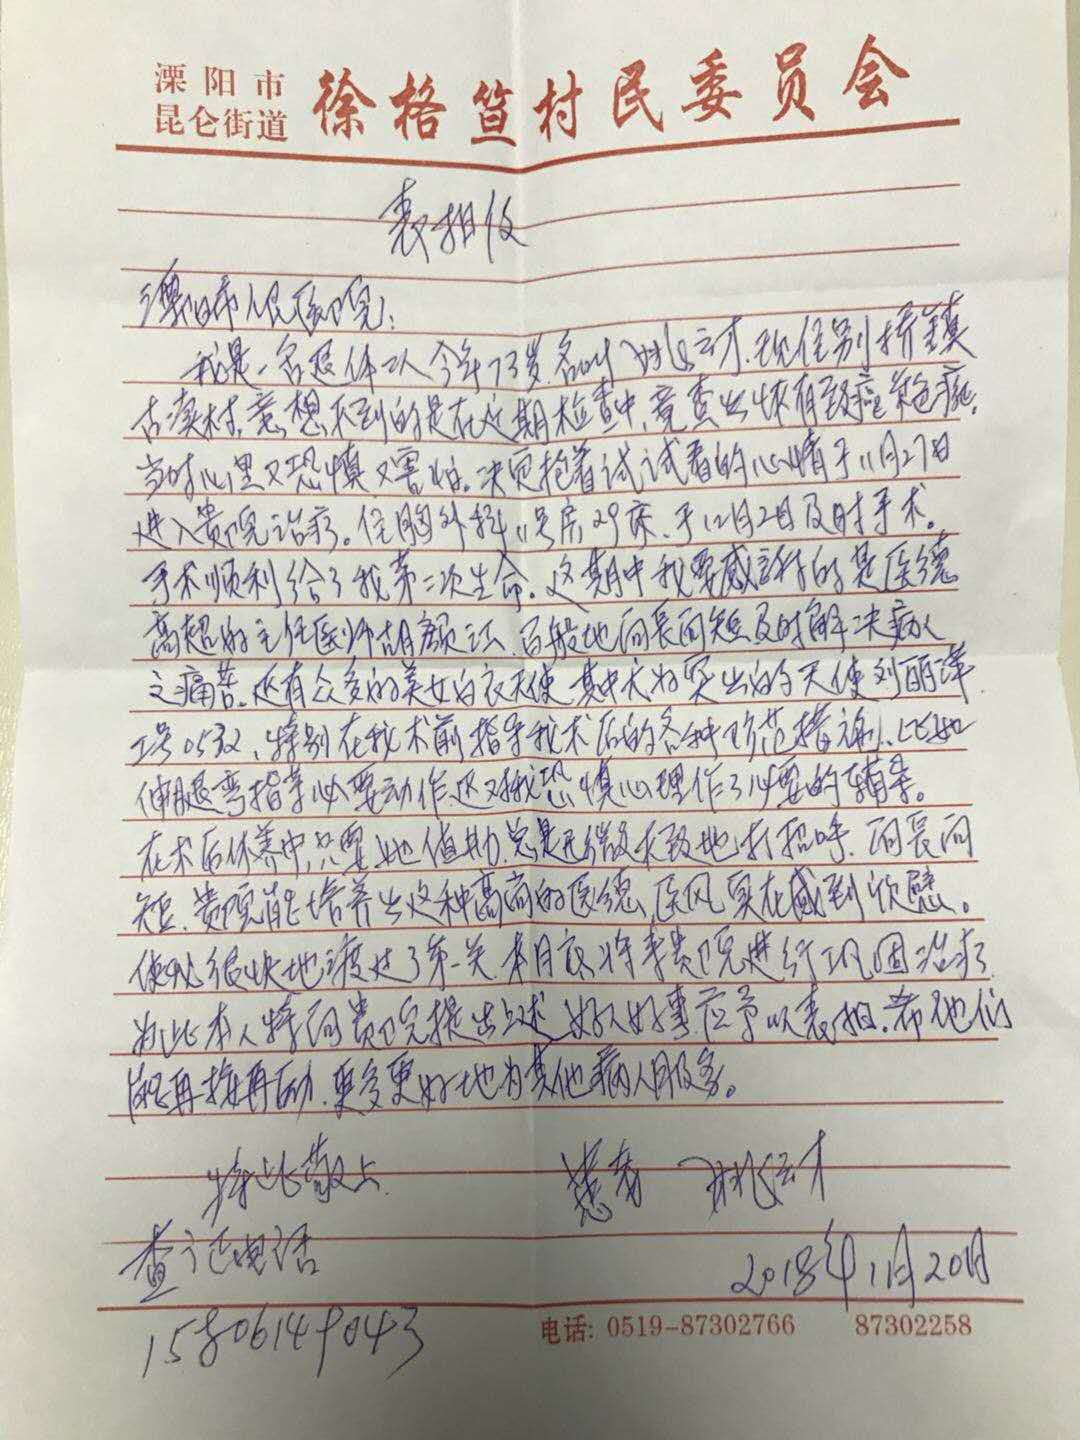 溧阳市
昆仑街道
徐格笪村民委员会
表扬信
溧阳市人民医院:
我是一名退休工人今年73岁,名叫姚云才.现住别桥镇
古渎村,意想不到的是在近期检查中,竟查出怀有致癌
当时心里又恐慎又害怕。决定抱着试试看的心情于11月27日
进入贵院治疗。住胸外科11号房29床.于12月2日及时手术。
手术顺利给了我第二次生命。这期中我要感谢的是医德
高超的主任医师胡颜,百般地问长问短及时解决病人
之痛苦。还有众多的美女白衣天使.其中尤为突出的天使刘丽萍
工号0532,特别在我术前指导我术后的各种防范措施,比如
伸腿弯指等必要动作.还对我恐慎心理作了必要的辅导。
在术后休养中,只要她值班,总是无微不致地打招呼.问长问
短.贵院能培养出这种高尚的医德,医风实在感到欣慰。
使我很快地渡过了第一关.本月底将来贵院进行巩固治疗
为此本人特向贵院提出上述好人好事应予以表扬.希他们
能再接再励.更多更好地为其他病人服务。
特此敬上
患者 姚云才
查证电话
2018年1月20日
15806149043
电话: 0519-87302766 87302258